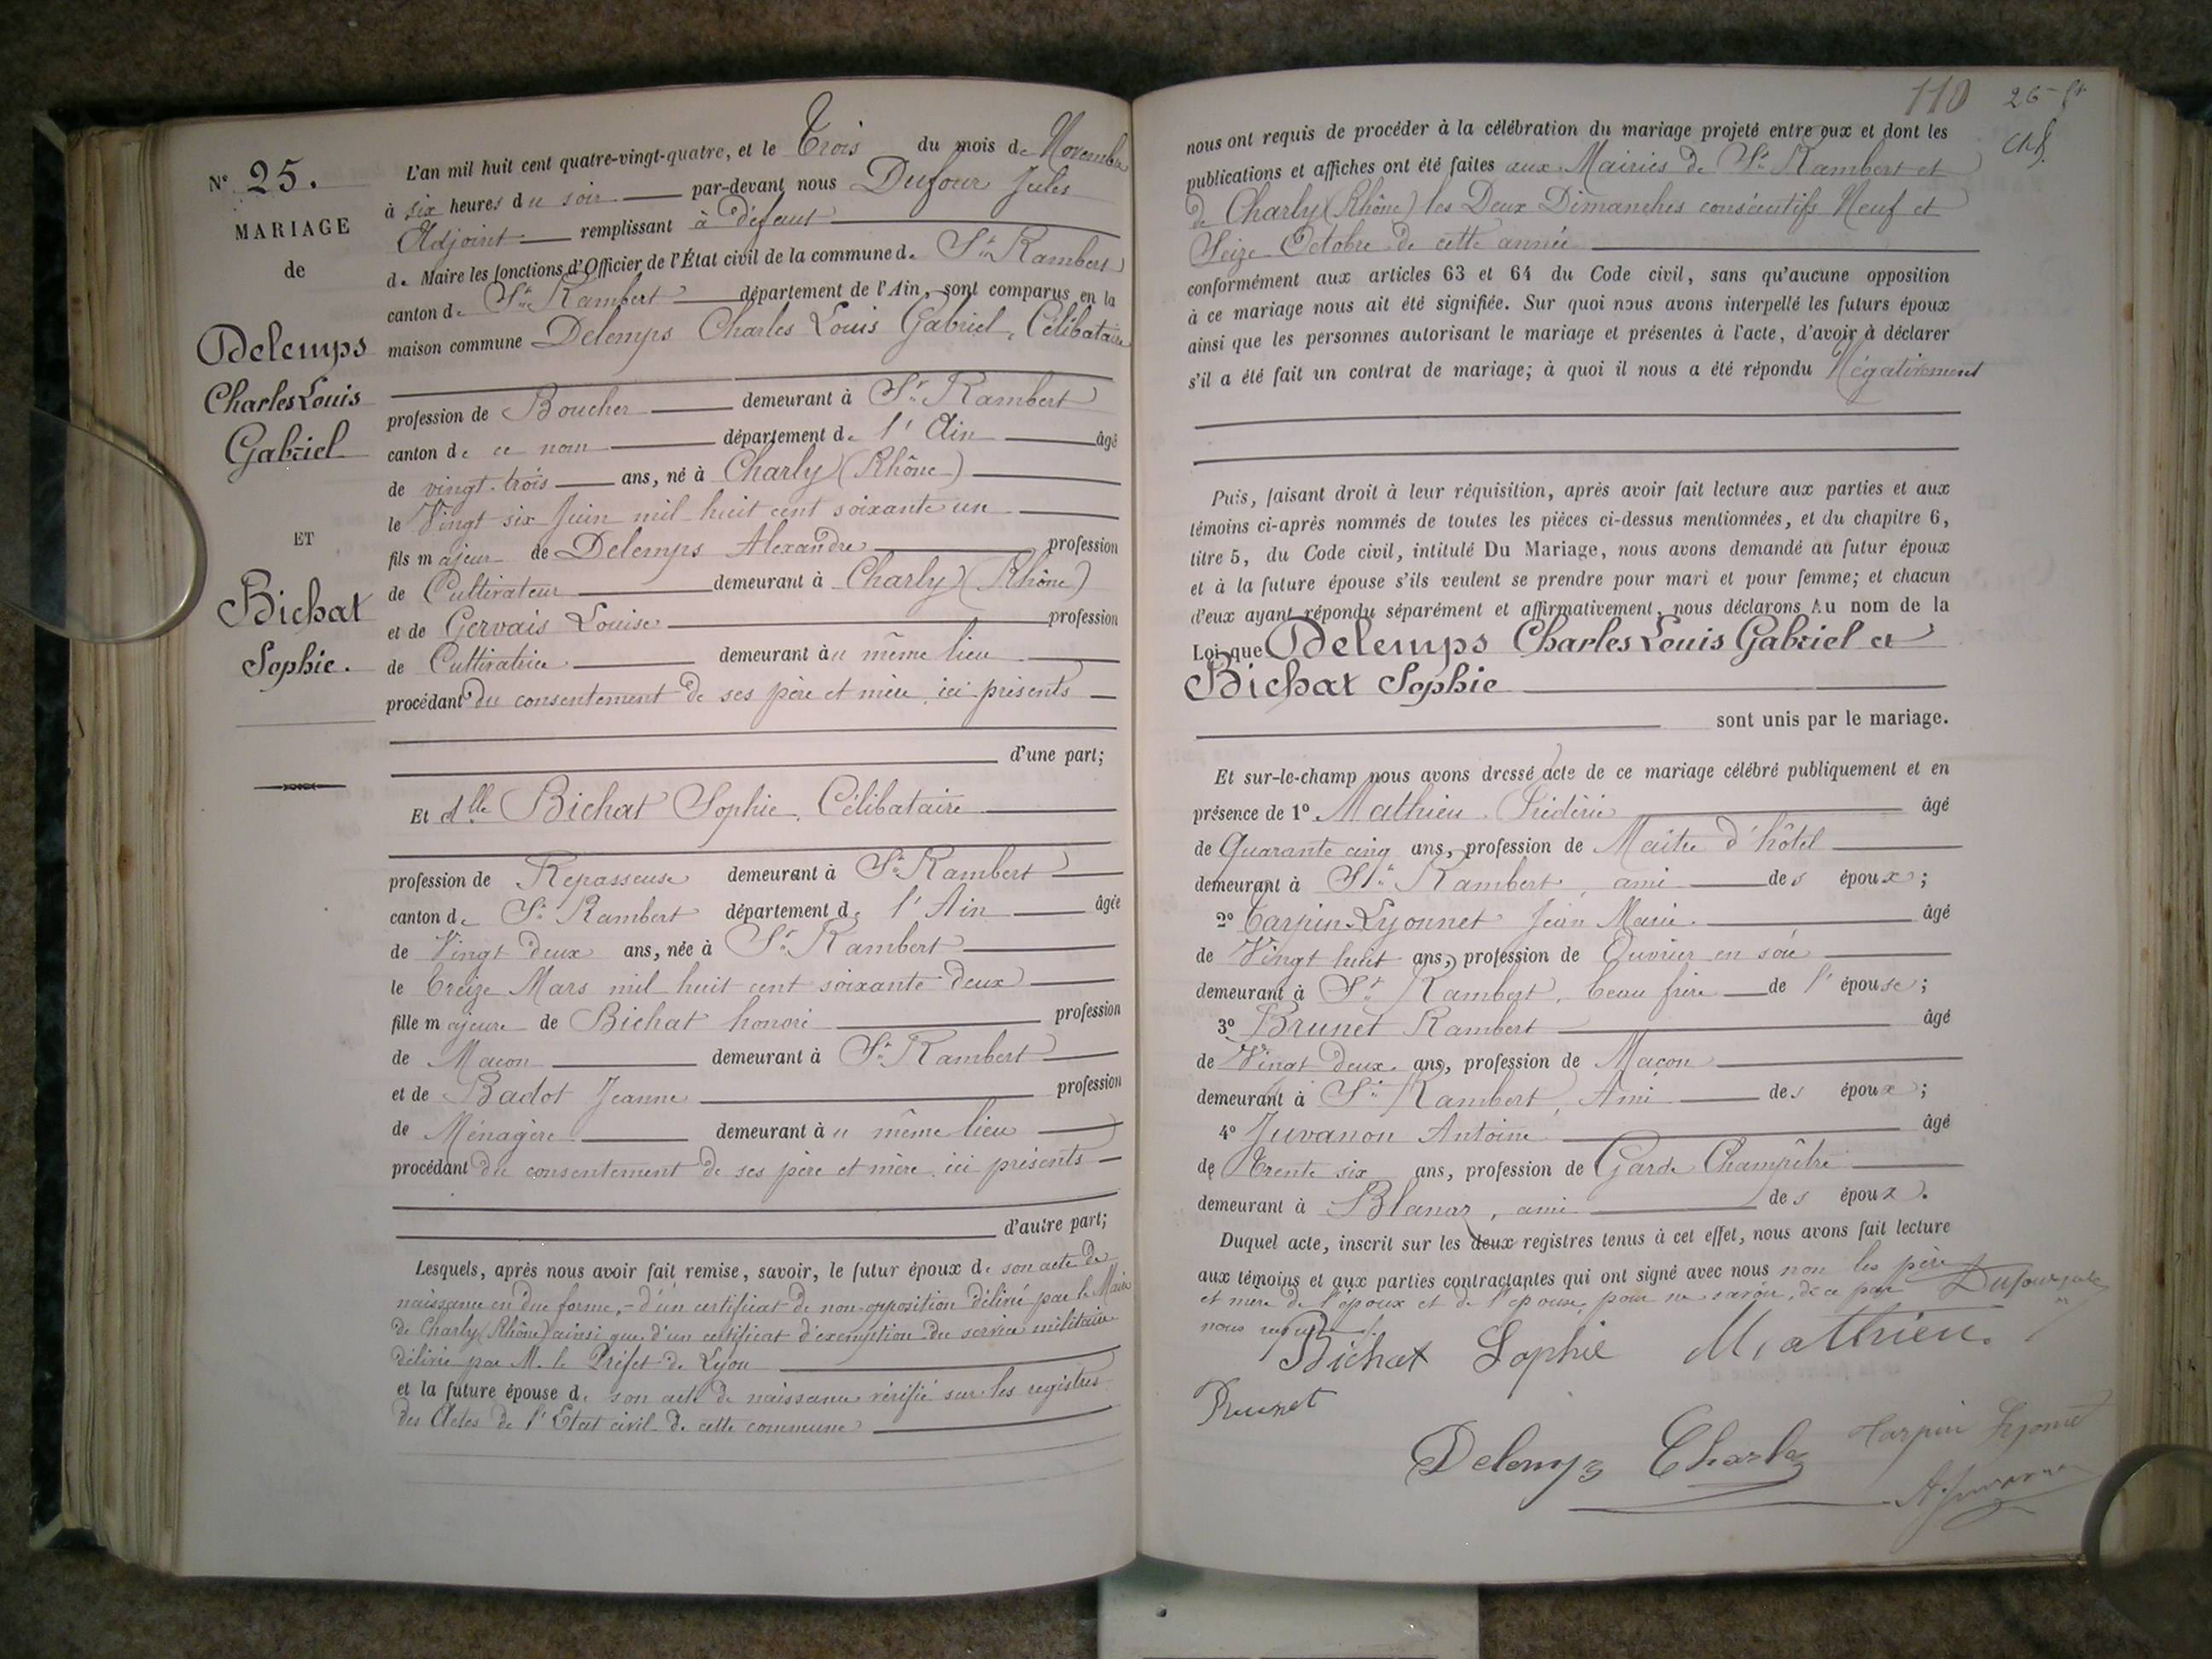 N° 25.
MARIAGE
de
Delemps
Charles Louis
Gabriel
ET
Bichat
Sophie.
L'an mil huit cent quatre-vingt-quatre, et le Trois du mois de Novembre
à six heures du soir par-devant nous Dufour Jules
Adjoint remplissant à défaut
de Maire les fonctions d'Officier de l'État civil de la commune de St Rambert
canton de St Rambert département de l'Ain, sont comparus en la
maison commune Delemps Charles Louis Gabriel, Célibataire
profession de Boucher demeurant à St Rambert
canton de ce nom département de l'Ain âgé
de vingt-trois ans, né à Charly (Rhône)
le Vingt six Juin mil huit cent soixante un
fils majeur de Delemps Alexandre profession
de Cultivateur demeurant à Charly (Rhône)
et de Gervais Louise profession
de Cultivatrice demeurant au même lieu
procédant du consentement de ses père et mère ici présents
d'une part;
Et dlle Bichat Sophie, Célibataire
profession de Repasseuse demeurant à St Rambert
canton de St Rambert département de l'Ain âgée
de Vingt deux ans, née à St Rambert
le treize Mars mil huit cent soixante deux
fille majeure de Bichat honoré profession
de Maçon demeurant à St Rambert
et de Badot Jeanne profession
de Ménagère demeurant au même lieu
procédant du consentement de ses père et mère ici présents
d'autre part;
Lesquels, après nous avoir fait remise, savoir, le futur époux de son acte de
naissance en due forme, - d'un certificat de non-opposition délivré par le Maire
de Charly (Rhône) ainsi que d'un certificat d'exemption du service militaire
délivré par M. le Préfet de Lyon
et la future épouse de son acte de naissance vérifié sur les registres
des Actes de l'Etat civil de cette commune
110 26
nous ont requis de procéder à la célébration du mariage projeté entre eux et dont les
publications et affiches ont été faites aux Mairies de St Rambert et
de Charly (Rhône) les Deux Dimanches consécutifs Neuf et
Seize Octobre de cette année
conformément aux articles 63 et 64 du Code civil, sans qu'aucune opposition
à ce mariage nous ait été signifiée. Sur quoi nous avons interpellé les futurs époux
ainsi que les personnes autorisant le mariage et présentes à l'acte, d'avoir à déclarer
s'il a été fait un contrat de mariage; à quoi il nous a été répondu Négativement
Puis, faisant droit à leur réquisition, après avoir fait lecture aux parties et aux
témoins ci-après nommés de toutes les pièces ci-dessus mentionnées, et du chapitre 6,
titre 5, du Code civil, intitulé Du Mariage, nous avons demandé au futur époux
et à la future épouse s'ils veulent se prendre pour mari et pour femme; et chacun
d'eux ayant répondu séparément et affirmativement, nous déclarons Au nom de la
Loi que Delemps Charles Louis Gabriel et
Bichat Sophie
sont unis par le mariage.
Et sur-le-champ nous avons dressé acte de ce mariage célébré publiquement et en
présence de 1° Mathieu Frédéric âgé
de Quarante cinq ans, profession de Maitre d'hôtel
demeurant à St Rambert, ami des époux;
2° Tarpin-Lyonnet Jean Marie âgé
de Vingt huit ans, profession de Ouvrier en soie
demeurant à St Rambert, beau frère de l'épouse;
3° Brunet Rambert âgé
de Vingt deux ans, profession de Maçon
demeurant à St Rambert, Ami des époux;
4° Juvanon Antoine âgé
de Trente six ans, profession de Garde Champêtre
demeurant à Blanaz, ami des époux.
Duquel acte, inscrit sur les deux registres tenus à cet effet, nous avons fait lecture
aux témoins et aux parties contractantes qui ont signé avec nous non les père
et mère de l'époux et de l'épouse, pour ne savoir, de ce par Dufour Jules
nous requis
Bichat Sophie Mathieu.
Brunet
Delemps Charles Tarpin Lyonnet
A. Juvanon